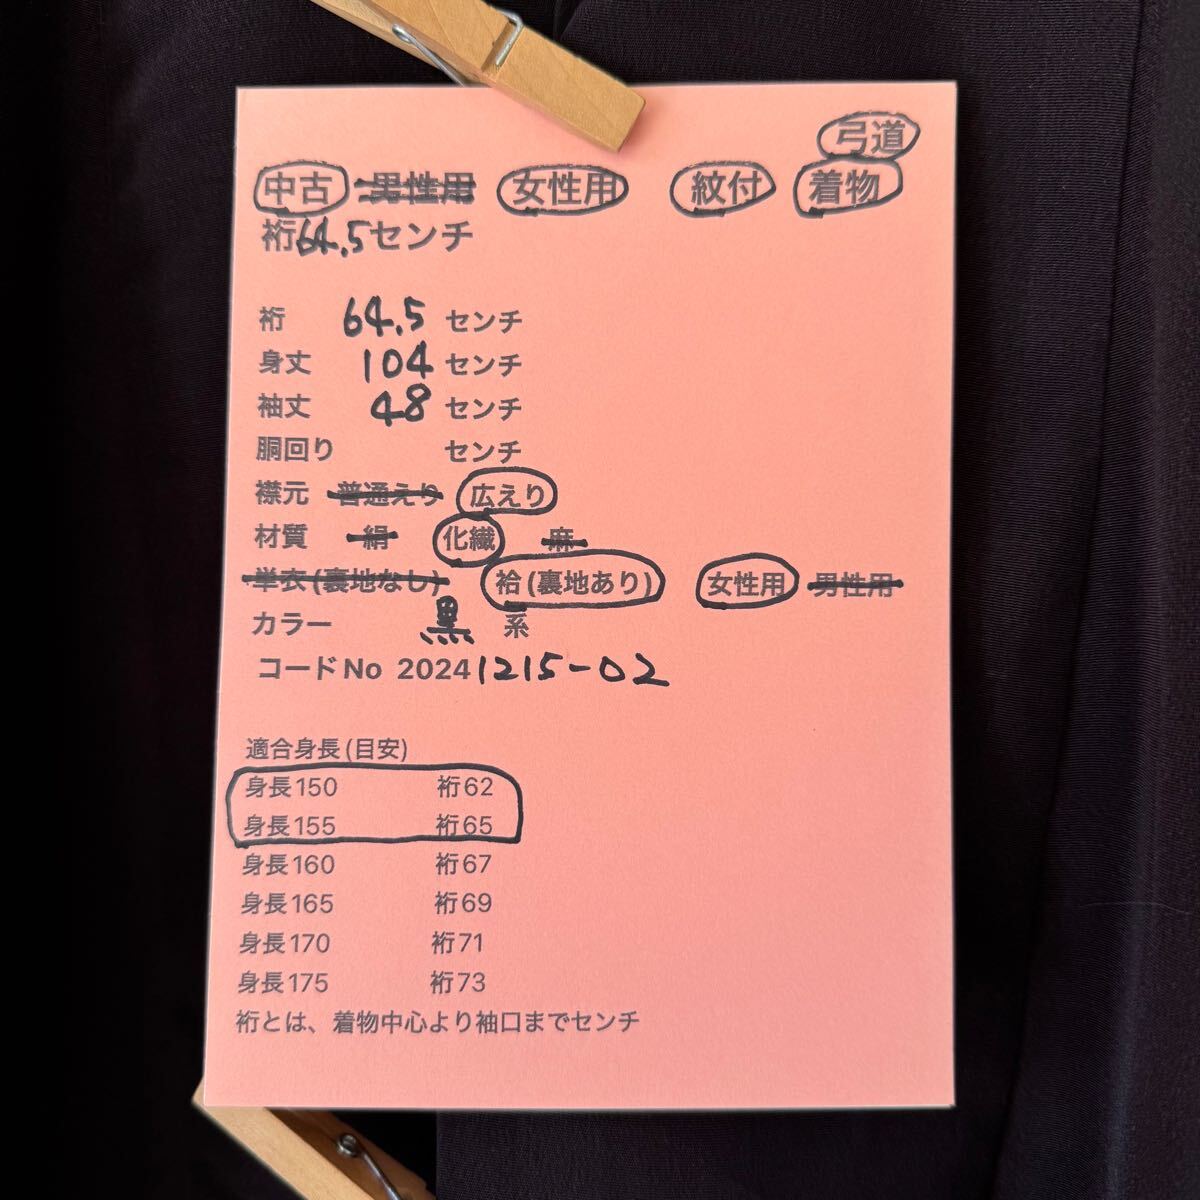 弓道
中古 男性用 女性用 紋付 着物
裄64.5センチ
裄 64.5 センチ
身丈 104 センチ
袖丈 48 センチ
胴回り センチ
襟元 普通えり 広えり
材質 絹 化繊 麻
単衣(裏地なし) 袷(裏地あり) 女性用 男性用
カラー 黒 系
コードNo 20241215-02
適合身長(目安)
身長150 裄62
身長155 裄65
身長160 裄67
身長165 裄69
身長170 裄71
身長175 裄73
裄とは、着物中心より袖口までセンチ